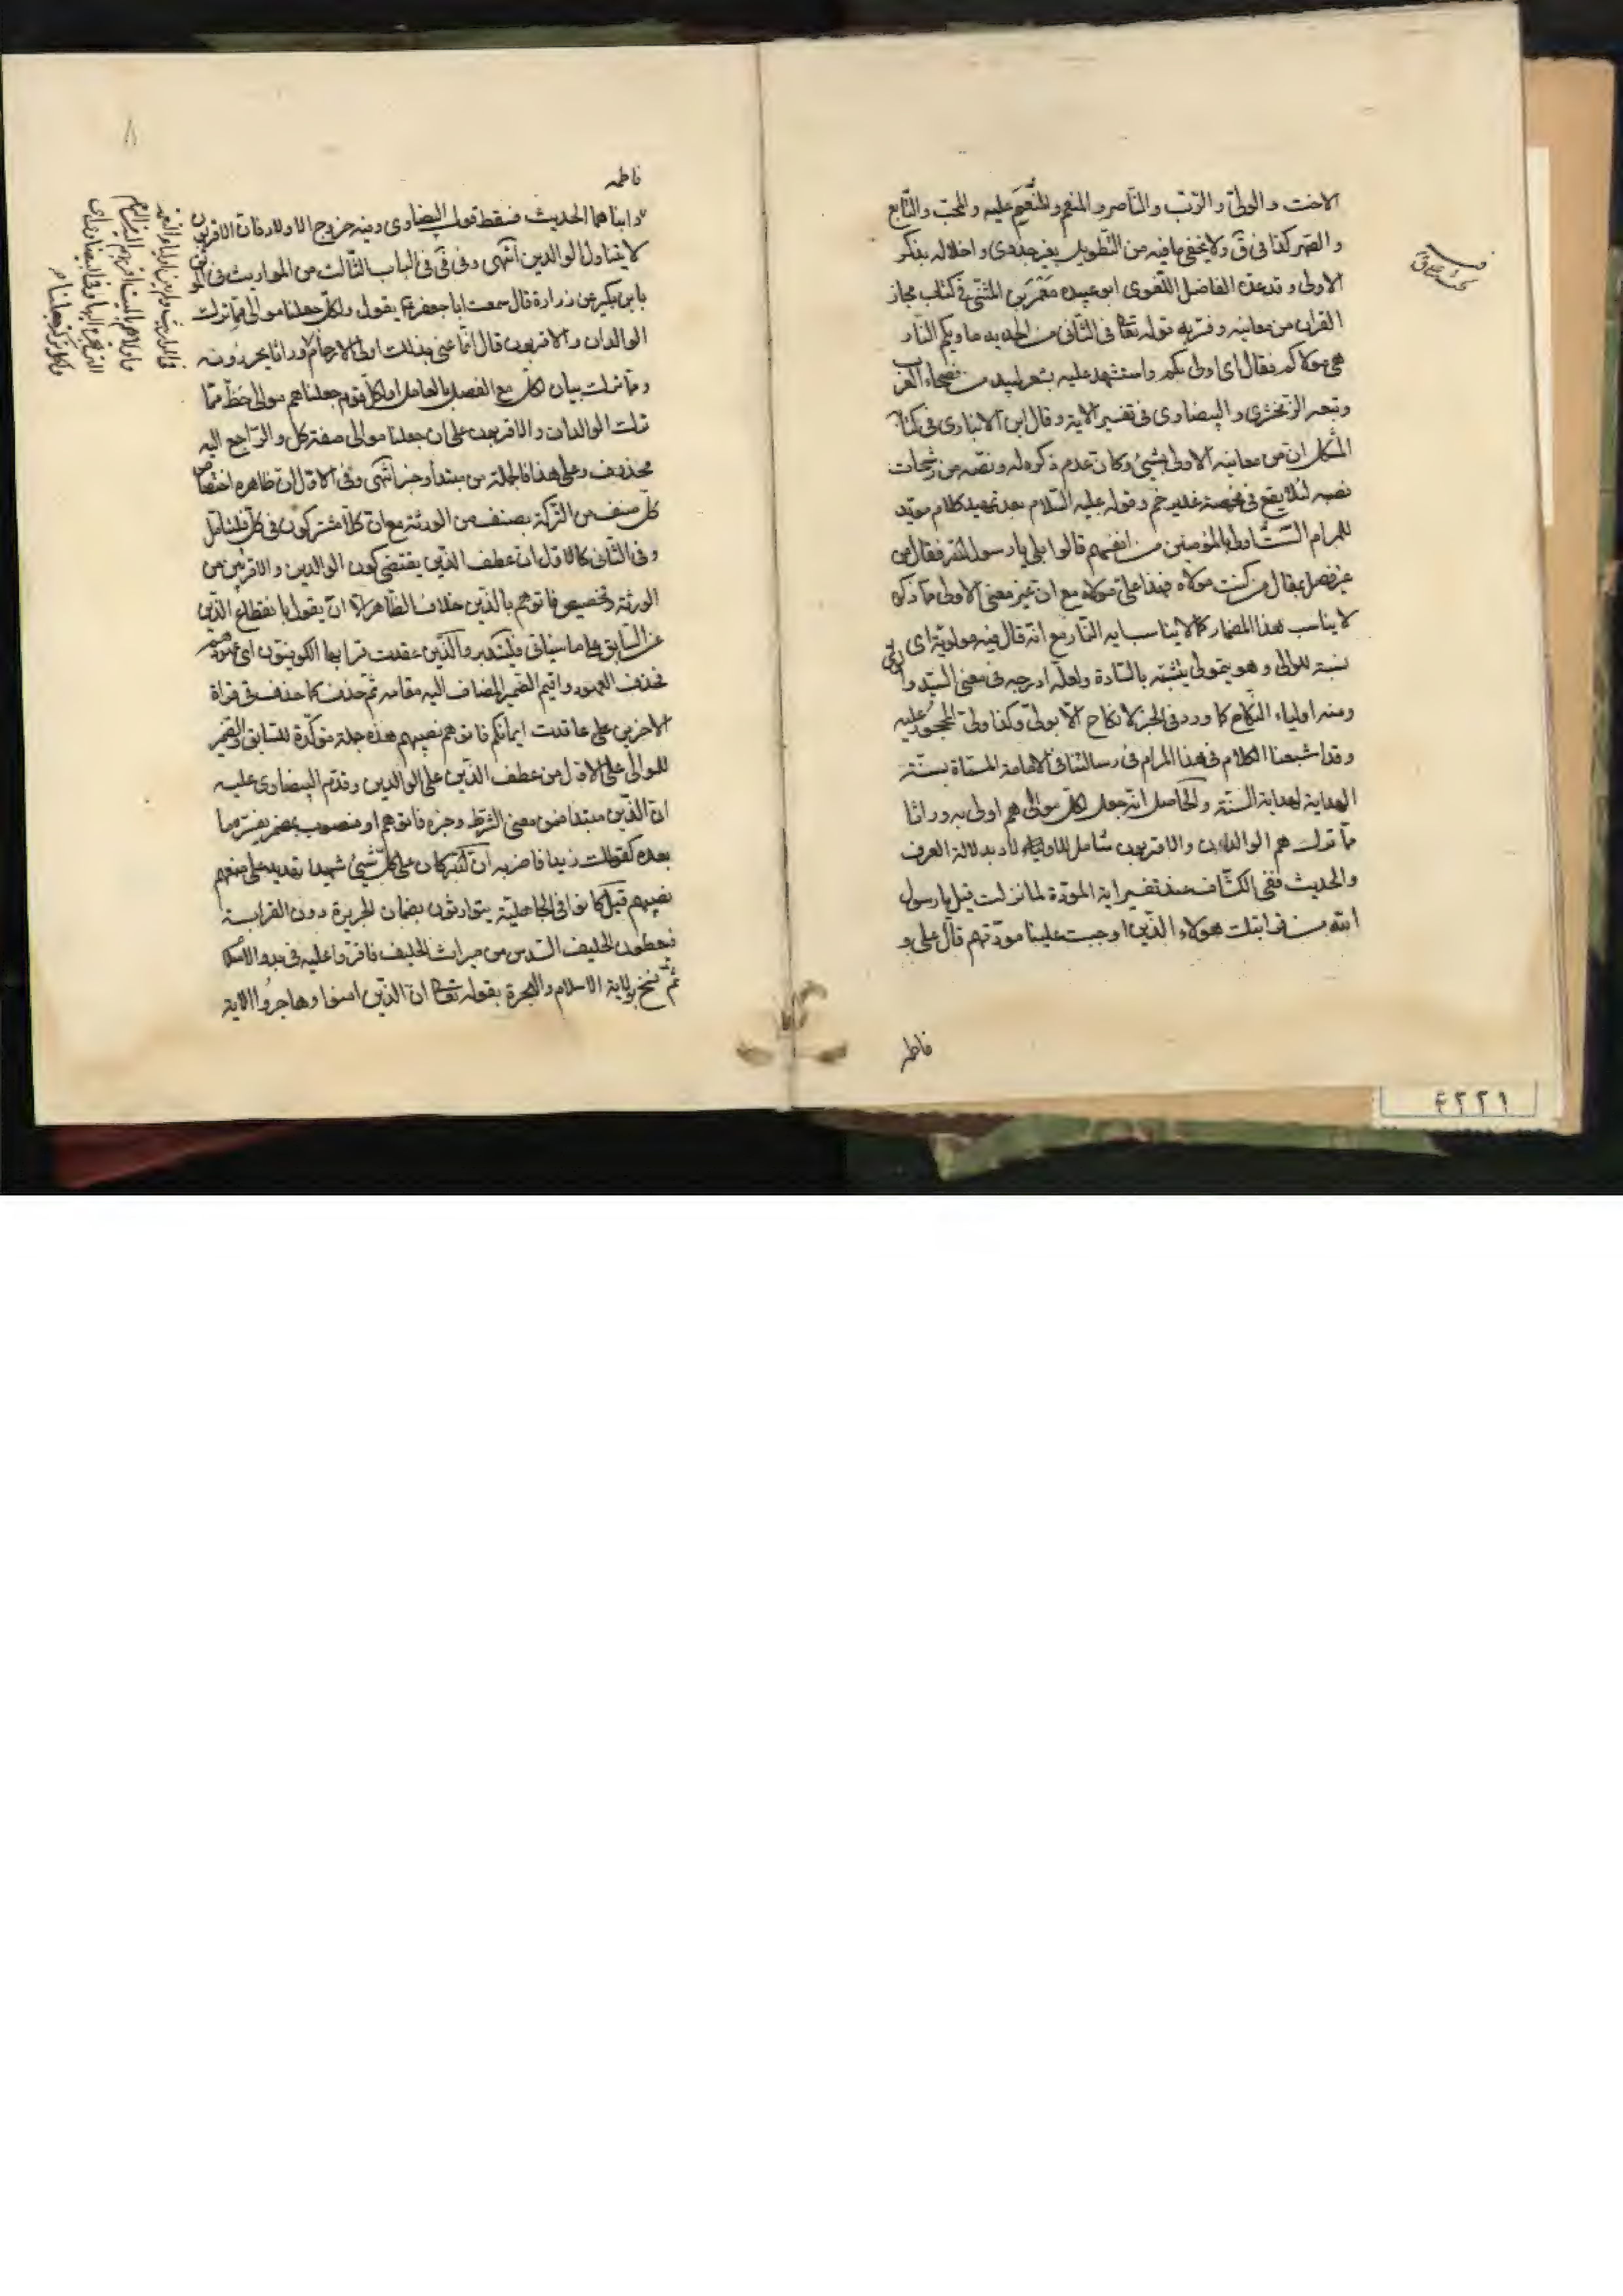 الاخت والولىّ والرّبّ والنّاصر والمنعم والمنعَم عليه والمحبّ والتّابع
والصّهر كذا فى قَ ولا يخفى ما فيه من التّطويل بغير جدوى واخلاله بذكر
الاولى وقد عدّه الفاضل اللّغوى ابو عبيده مَعْمَر بن المثنّى فى كتاب مجاز
القران من معانيه وفسّر به قوله تعالى فى الثّانى من الحديد ماويكم النّار
هى مولاكم فقال اى اولى بكم واستشهد عليه بشعر لبيد من فصحاء العرب
وتبعه الزّمخشرى والبيضاوى فى تفسير الاية وقال ابن الانبارى فى كتاب
المشكل ان من معانيه الاولى بشيئ وكان عدم ذكره له ونصّه من رشحات
نصبه لئلا يقع فى مخمصة غدير خم وقوله عليه السّلام بعد تمهيد كلام مؤيّد
للمرام الست اولى بالمؤمنين من انفسهم قالوا بلى يا رسول الله فقال من
غير فصل بمقال من كنت مولاه فهذا علىّ مولاه مع ان غير معنى الاولى ممّا ذكره
لا يناسب هذا المضمار كما لا يناسب اية النّار مع انّه قال فيه مولويّة اى
نسبة للموالى وهو يتمولى يتشبّه بالسّادة ولعلّه ادرجه فى معنى السيّد و
ومنه اولياء النّكاح كما ورد فى الخبر لا نكاح الّا بولىّ وكذا ولىّ المحجور عليه
وقد اشبعنا الكلام فى هذا المرام فى رسالتنا فى الامامة المسمّاة بسنّة
الهداية لهداية السنّة والحاصل انّه جعل لكلّ موالى هم اولى به وراثا
ممّا ترك هم الوالدان والاقربون شامل للاولاد بدلالة العرف
والحديث ففى الكشّاف عند تفسير اية المودّة لما نزلت قيل يا رسول
الله من قرابتك هولاء الّذين اوجبت علينا مودّتهم قال علىّ و
فاطمه
فاطمه
وابناهما الحديث فسقط قول البيضاوى وفيه خروج الاولاد فانّ الاقربون
لا يتناول الوالدين انتهى وفى قى فى الباب الثّالث من المواريث فى
با بن بكير عن زرارة قال سمعت ابا جعفر ع يقول ولكلّ جعلنا موالى ممّا ترك
الوالدان والاقربون قال انّما عنى بذلك اولى الارحام
وممّا ترك بيان لكلّ مع الفصل بالعامل او لكلّ قوم جعلناهم موالى حظّ ممّا
ترك الوالدان والاقربون على ان جعلنا موالى صفة كل والرّاجع اليه
محذوف وعلى هذا فالجملة من مبتدأ وخبر انتهى وفى الاوّل انّ ظاهره اختصاص
كلّ صنف من التّركة بصنف من الورثة مع انّ كلّا مشتركون فى كلّ فليتأمّل
وفى الثّانى كالاوّل ان عطف الّذين يقتضى كون الوالدين والاقربين من
الورثة وتخصيص فاتوهم بالّذين خلاف الظّاهر الّا ان يقول بانقطاع الّذين
عن السّابق على ما سيأتى فليتدبر والّذين عقدت قرأ بها الكوفيّون اى عهودهم
فحذف العهود واقيم الضّمير المضاف اليه مقامه ثمّ حذف كما حذف فى قراة
الاخرين على عاقدت ايمانكم فاتوهم نصيبهم هذه جملة مؤكّدة للسّابق والضّمير
للموالى على الاوّل من عطف الّذين على الوالدين وقدّم البيضاوى عليه
انّ الّذين مبتدا ضمّن معنى الشّرط وخبره فاتوهم او منصوب بمضمر يفسّره ما
بعده كقولك زيدا فاضربه انّ الله كان على كلّ شيئ شهيدا تهديد على منعهم
نصيبهم قيل كانوا فى الجاهليّة يتوارثون بضمان الجريرة دون القرابة
فيعطون الحليف السّدس من ميراث الحليف فاقرّوا عليه فى بدو الاسلام
ثمّ نسخ بولاية الاسلام والهجرة بقوله تعالى انّ الّذين امنوا وهاجروا الاية
٤٢٢١